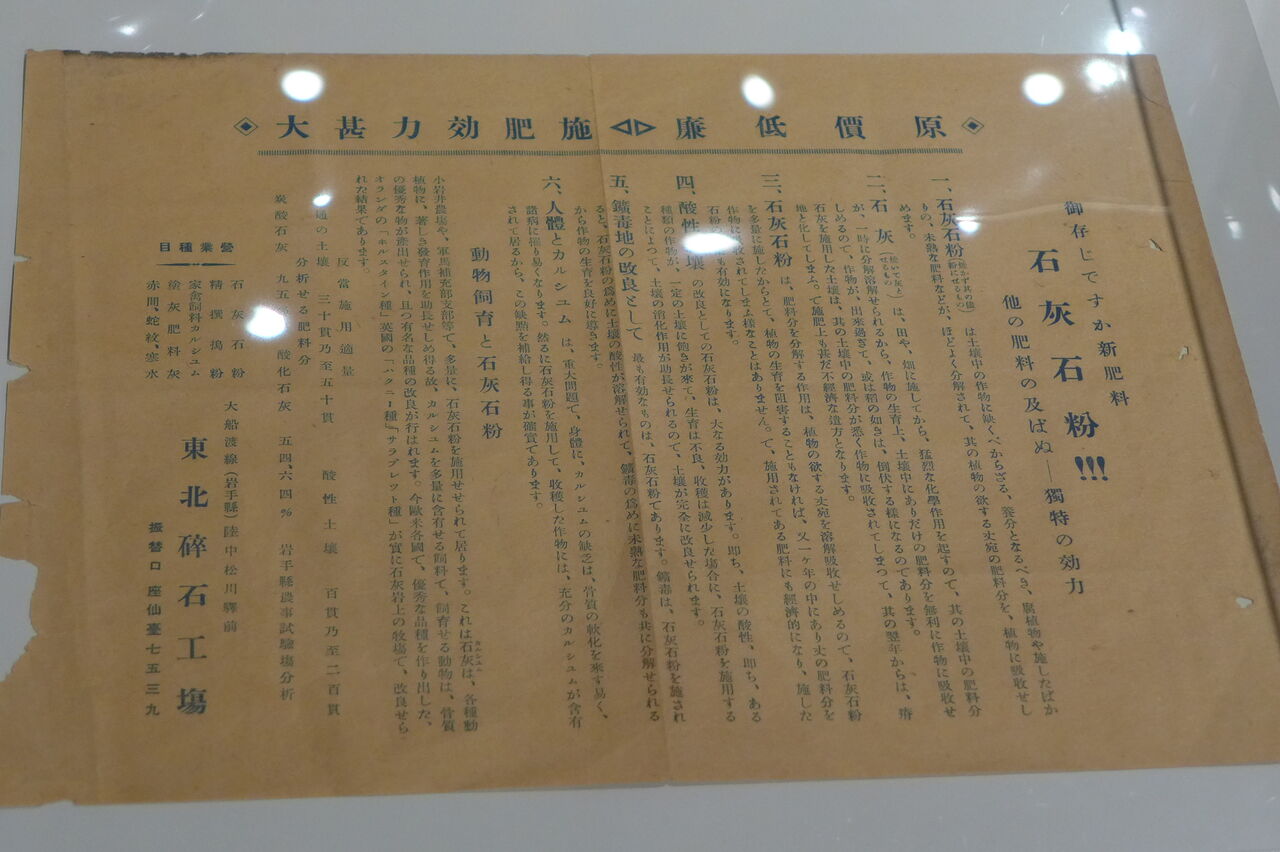 原價低廉◁▷施肥効力甚大
御存じですか新肥料
石灰石粉!!!
他の肥料の及ばぬ—獨特の効力
一、石灰石粉 は土壤中の作物に缺くべからざる、養分となるべき、腐植物や施したばか
りの、未熟な肥料などが、ほどよく分解されて、其の植物の欲する丈宛の肥料分を、植物に吸收せし
めます。
二、石灰 は、田や、畑に施してから、猛烈な化學作用を起すので、其の土壤中の肥料分
が、一時に分解溶解せられるから、作物の生育上、土壤中にありだけの肥料分を無利に作物に吸收せ
しめるので、作物が、出來過ぎて、或は稻の如きは、倒伏する樣になるのであります。
石灰を施用した土壤は、其の土壤中の肥料分が悉く作物に吸收されてしまつて、其の翌年からは、瘠
地と化してしまふ。て施肥上も甚だ不經濟な遣方となります。
三、石灰石粉 は、肥料分を分解する作用は、植物の欲する丈宛を溶解吸收せしめるので、石灰石粉
を多量に施したからとて、植物の生育を阻害することもなければ、又一ヶ年の中にあり丈の肥料分を
作物に吸收されてしまふ樣なことはありません。て、施用されてある肥料にも經濟的になり、施した
石粉の も有効になります。
四、酸性 壤 の改良としての石灰石粉は、大なる効力があります。即ち、土壤の酸性、即ち、ある
種類の作物が、一定の土壤に飽きが來て、生育は不良、收穫は減少した場合に、石灰石粉を施用する
ことによつて、土壤の消化作用が助長せられるので、土壤が完全に改良せられます。
五、鑛毒地の改良として 最も有効なものは、石灰石粉であります。鑛毒は、石灰石粉を施され
ると、石灰石粉の爲めに土壤の酸性が溶解せられて、鑛毒の爲めに未熟な肥料分も共に分解せられる
から作物の生育を良好に導きます。
六、人體とカルシユム は、重大問題で、身體に、カルシユムの缺乏は、骨質の軟化を來す易く、
諸病に罹り易くなります。然るに石灰石粉を施用して、收穫した作物には、充分のカルシユムが含有
されて居るから、この缺點を補給し得る事が確實であります。
動物飼育と石灰石粉
小岩井農塲や、軍馬補充部支部等て、多量に、石灰石粉を施用せせられて居ります。これは石灰は、各種動
植物に、著しき發育作用を助長せしめ得る故、カルシユムを多量に含有せる飼料て、飼育せる動物は、骨質
の優秀な物が產出せられ、且つ有名な品種の改良が行はれます。今歐米各國で、優秀な品種を作り出した、
オランダの「ホルスタイン種」英國の「ハクニー種」「サラブレット種」が實に石灰岩上の牧場で、改良せら
れた結果であります。
反當施用適量
通の土壤 三十貫乃至五十貫 酸性土壤 百貫乃至二百貫
分析せる肥料分
炭酸石灰 九五 酸化石灰 五四、六四% 岩手縣農事試驗塲分析
營業種目
石灰石粉
精撰搗粉
家禽飼料カルシユム
塗灰肥料灰
赤間、蛇紋、寒水
大船渡線(岩手縣)陸中松川驛前
東北碎石工塲
振替口座仙臺七五三九